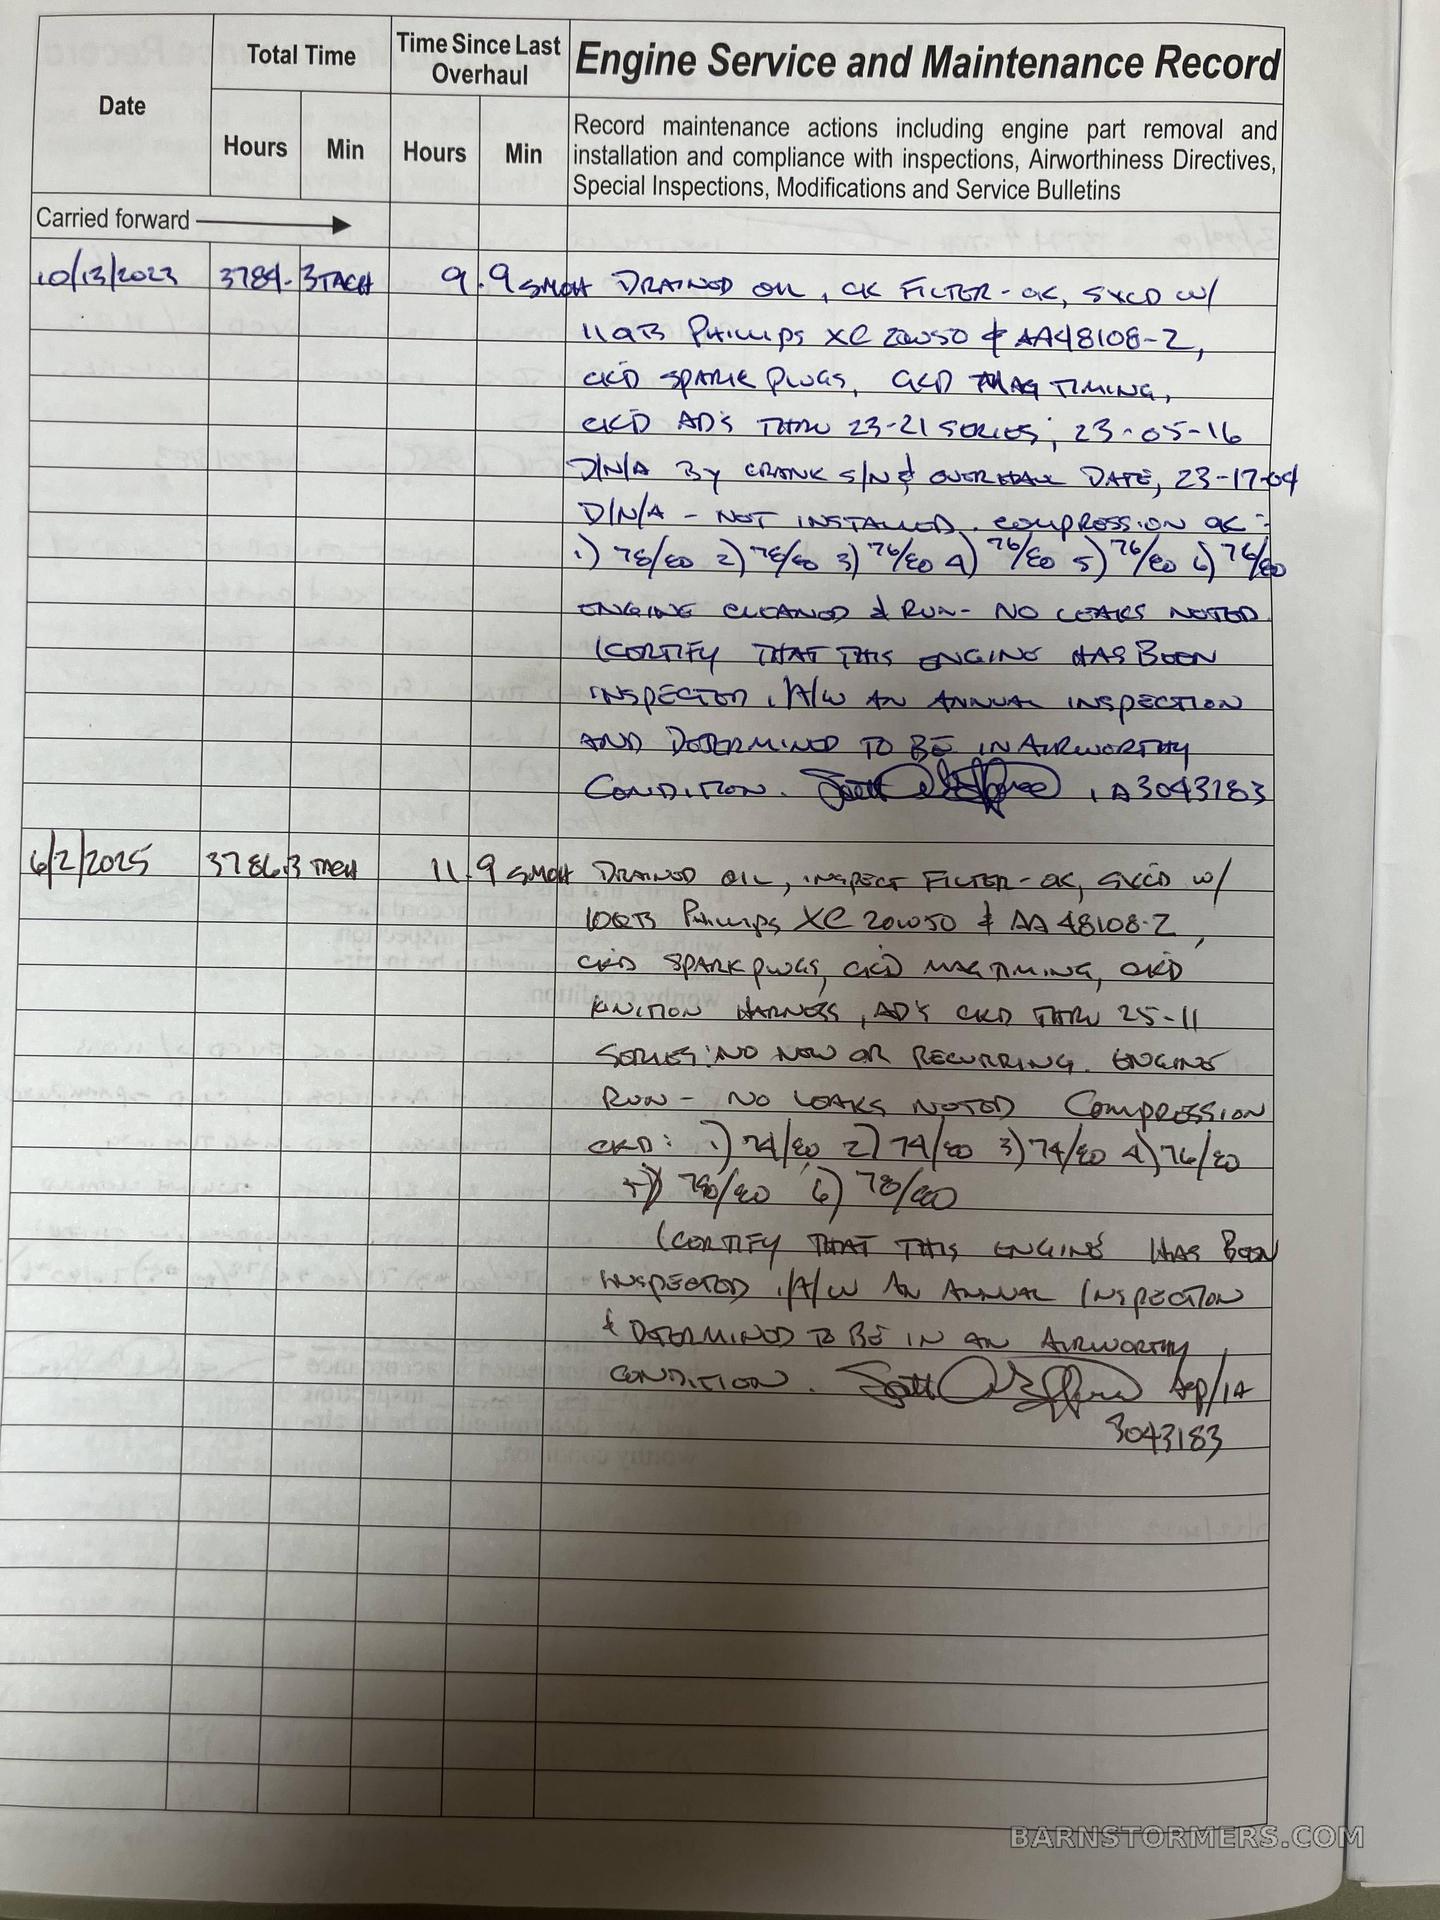 Date
Total Time
Time Since Last Overhaul
Engine Service and Maintenance Record
Hours
Min
Hours
Min
Record maintenance actions including engine part removal and
installation and compliance with inspections, Airworthiness Directives,
Special Inspections, Modifications and Service Bulletins
Carried forward
10/13/2023 3784.3 TACH 9.9 SMOH DRAINED OIL, CK FILTER-OK, SVCD W/
11QTS Phillips XC 20W50 & AA48108-2,
CKD SPARK PLUGS, CKD MAG TIMING,
CKD AD'S THRU 23-21 SERIES; 23-05-16
D/N/A BY CRANK S/N & OVERHAUL DATE, 23-17-04
D/N/A - NOT INSTALLED. COMPRESSION OK:
1) 78/80 2) 78/80 3) 76/80 4) 76/80 5) 76/80 6) 76/80
ENGINE CLEANED & RUN- NO LEAKS NOTED.
I CERTIFY THAT THIS ENGINE HAS BEEN
INSPECTED I/A/W AN ANNUAL INSPECTION
AND DETERMINED TO BE IN AIRWORTHY
CONDITION. Scott IA3043183
6/2/2025 3786.3 TACH 11.9 SMOH DRAINED OIL, INSPECT FILTER-OK, SVCD W/
10QTS Phillips XC 20W50 & AA 48108-2,
CKD SPARK PLUGS, CKD MAG TIMING, CKD
IGNITION HARNESS, AD'S CKD THRU 25-11
SERIES: NO NEW OR RECURRING. ENGINE
RUN - NO LEAKS NOTED COMPRESSION
CKD: 1) 74/80 2) 74/80 3) 74/80 4) 76/80
5) 78/80 6) 78/80
I CERTIFY THAT THIS ENGINE HAS BEEN
INSPECTED I/A/W AN ANNUAL INSPECTION
& DETERMINED TO BE IN AN AIRWORTHY
CONDITION. Scott A&P/IA
3043183
BARNSTORMERS.COM